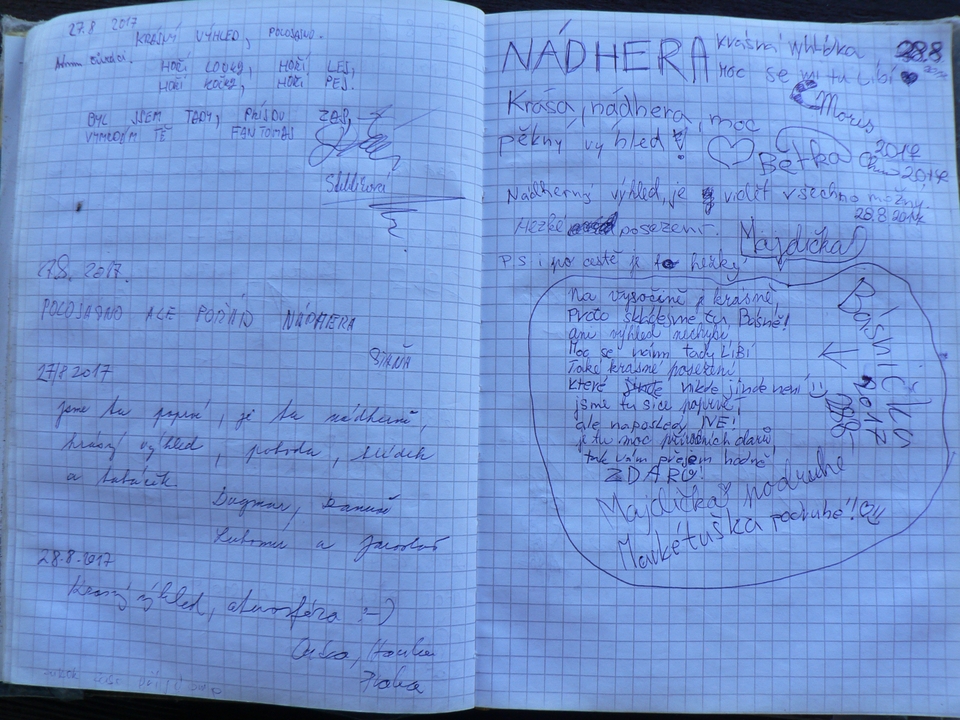 27.8 2017
KRÁSNÝ VÝHLED, POLOJASNO.
HOŘÍ LOUKY, HOŘÍ LES,
HOŘÍ KOČKY, HOŘÍ PES.
BYL JSEM TADY, PŘIJDU ZAS,
TĚ FANTOMAS
2017.
POLOJASNO ALE POŘÁD NÁDHERA
STÁŇA
27/8 2017
jsme tu poprvé, je tu nádherně,
krásný výhled, pohoda, klídek
a tabáček.
Dagmar, Danuš
Lubomír a Jaroslav
28.8.2017
Krásný výhled, atmosféra :-)
Praha
NÁDHERA
krásná vyhlídka
moc se mi tu LíBí
28.8
Moris
Krása, nádhera, moc
pěkný výhled!
Bětka
2017
2017
Nádherný výhled, je vidět všechno možný.
28.8 2017
Hezké posezení.
Majdička
P.S i po cestě je to hezký
Na vysočině je krásně,
Proto skládejme tu, Básně!
ani výhled nechybí
Moc se nám tady LíBí
Také krásné posezení
které nikde jinde není :)
jsme tu sice poprvé,
ale naposledy NE!
je tu moc přírodních darů,
tak vám přejem hodně
ZDARU!
Básnička
28.8 2017
Majdička podruhé
Markétuška podruhé!!